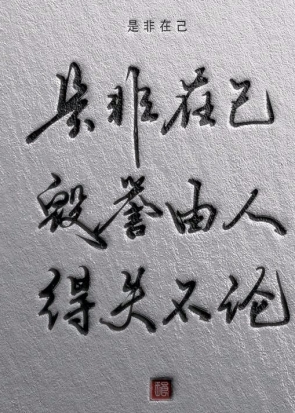 是非在己
是非在己
毁誉由人
得失不论